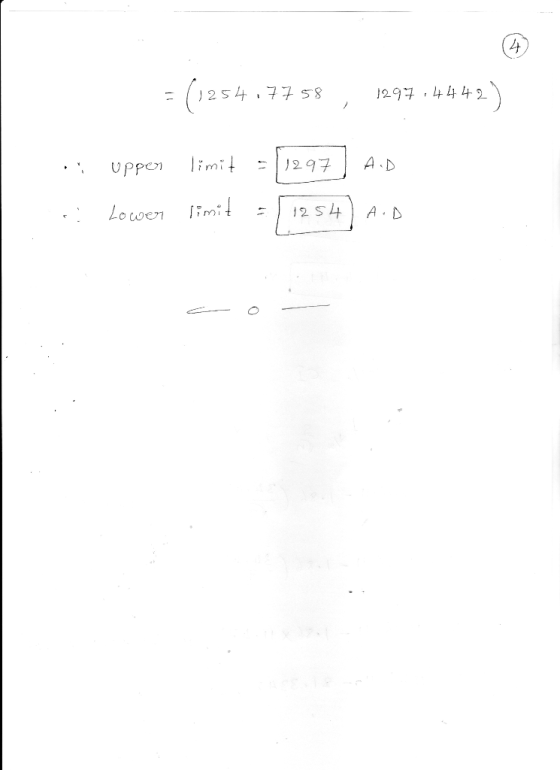 4
= (1254.7758 , 1297.4442)
∴ Upper limit = 1297 A.D
∴ Lower limit = 1254 A.D